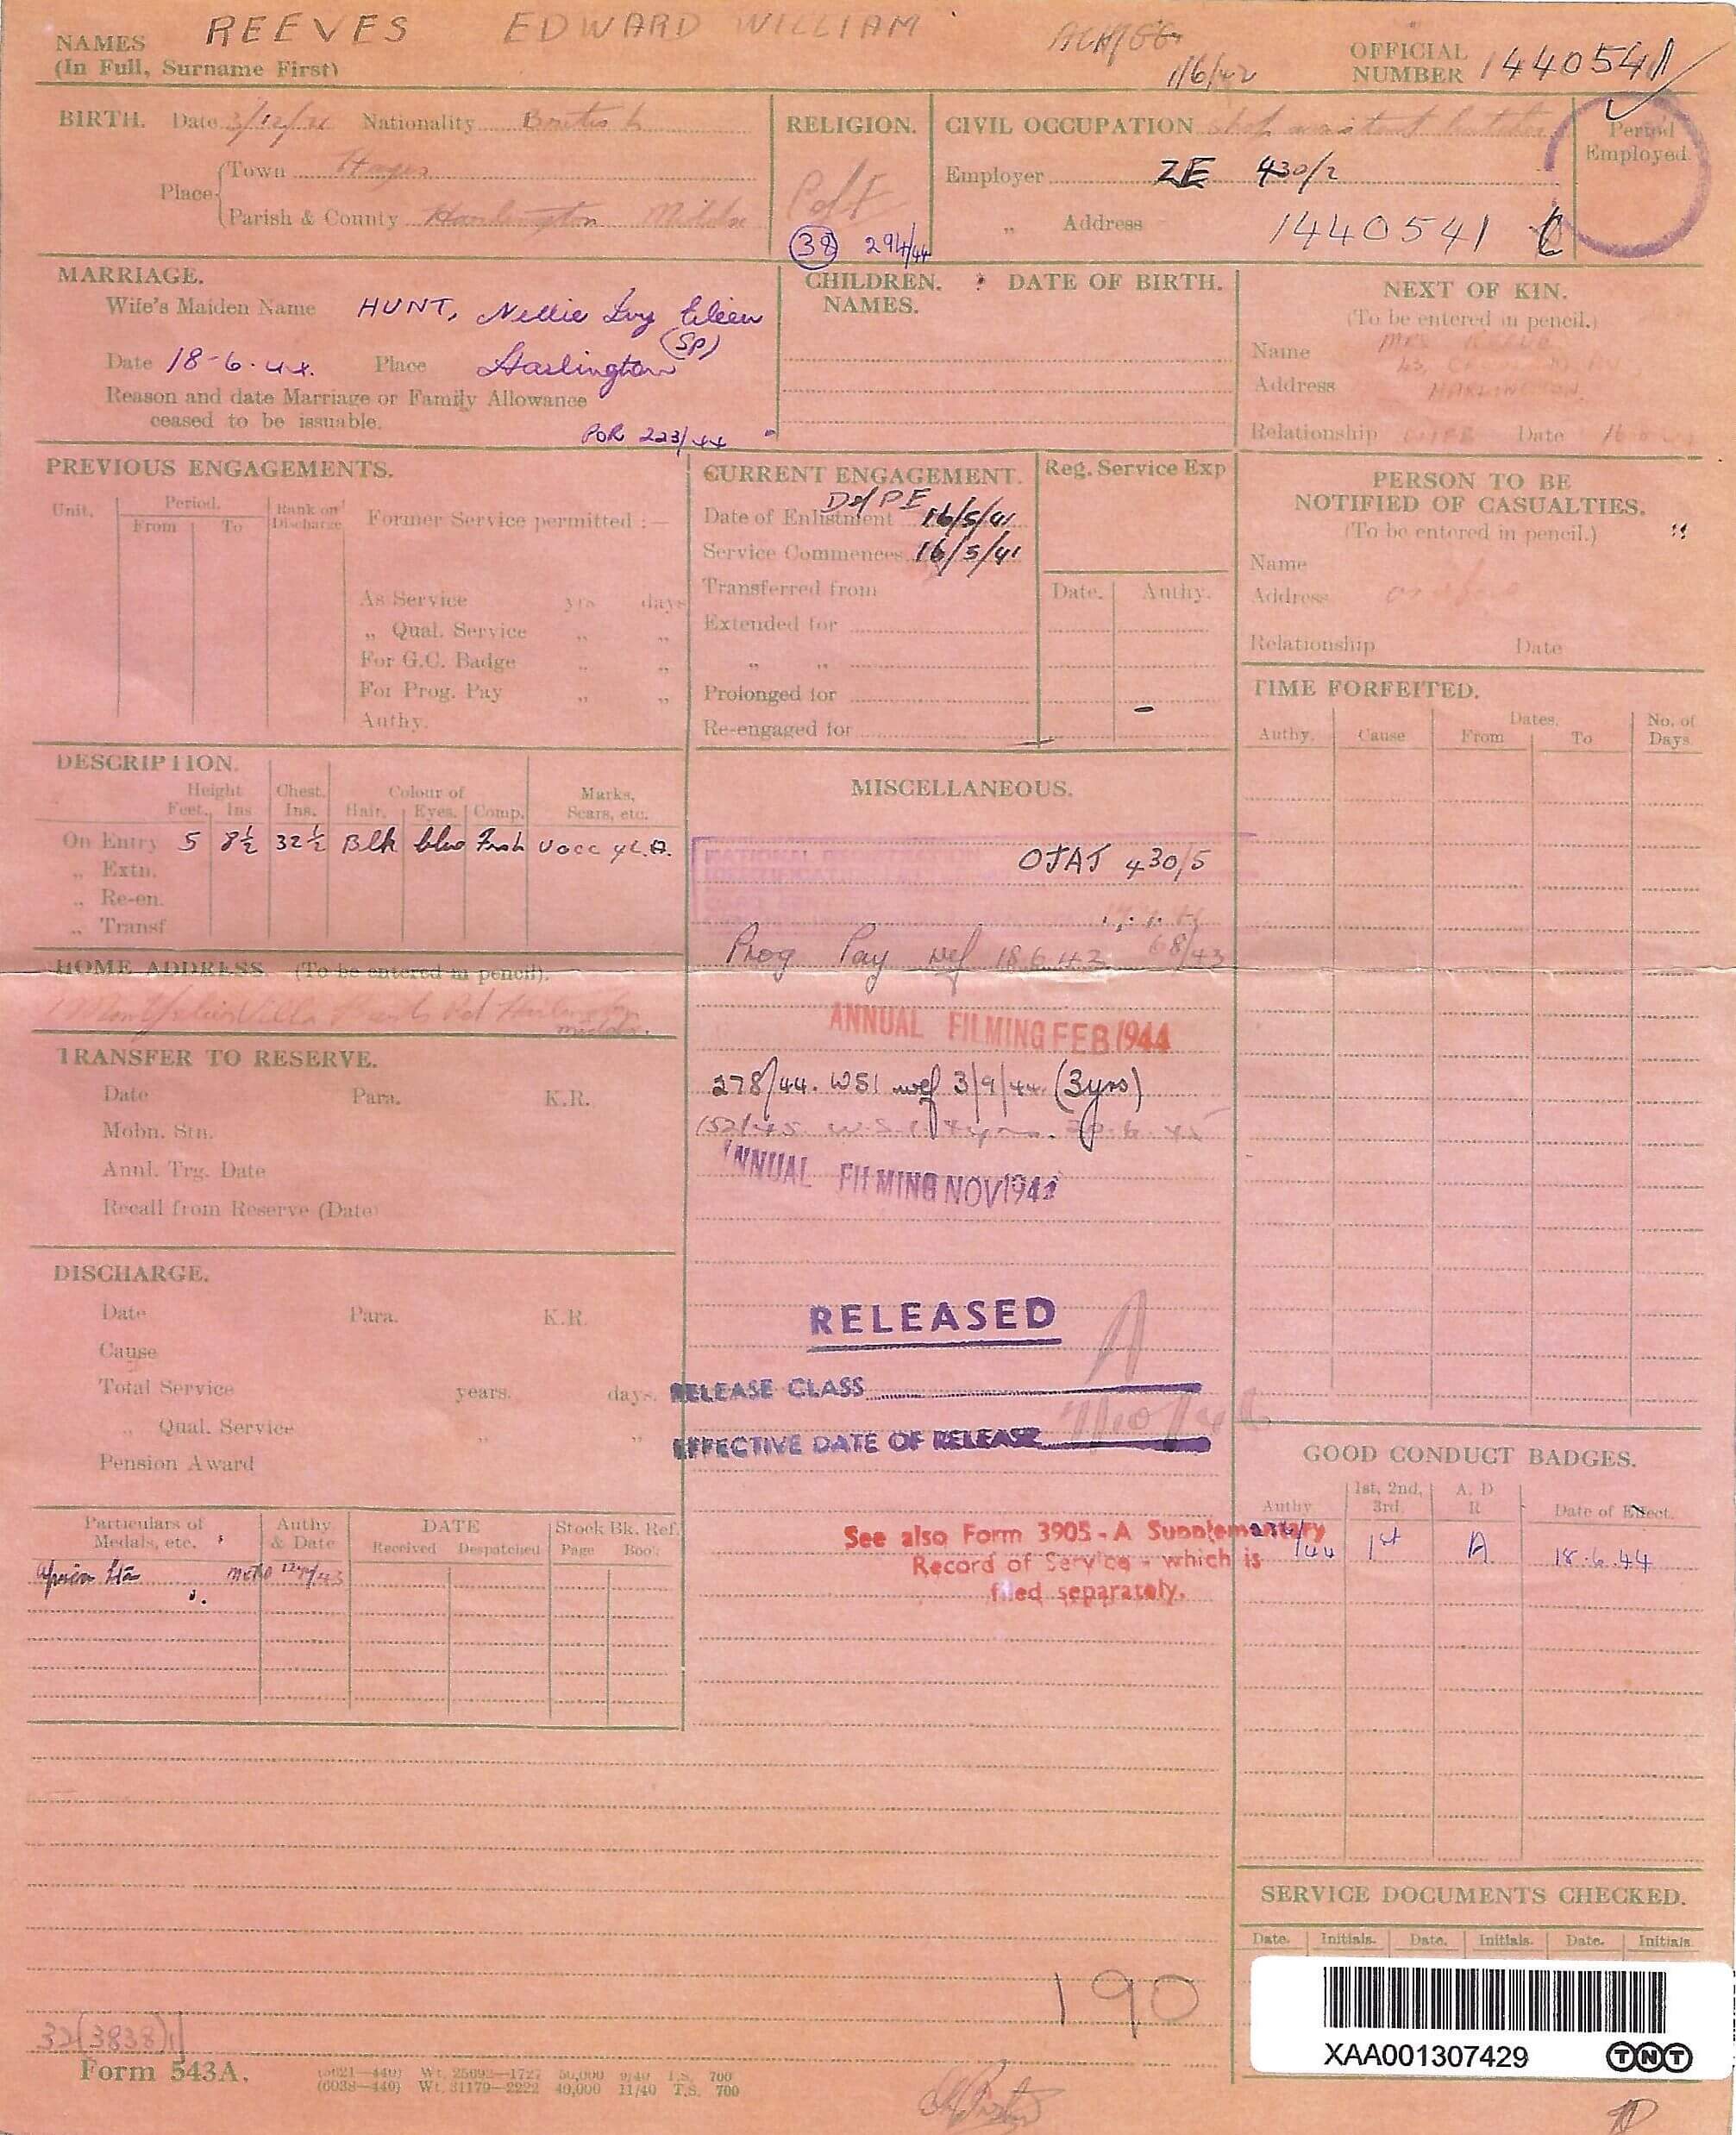 NAMES REEVES EDWARD WILLIAM
(In Full, Surname First)
1/6/42
OFFICIAL NUMBER 1440541
BIRTH. Date 3/12/21 Nationality British
Place Town Hayes
Parish & County Harlington Middx
RELIGION.
C of E
(38) 294/44
CIVIL OCCUPATION shop assistant butcher
Employer ZE 430/2
" Address 1440541
Period Employed.
MARRIAGE.
Wife's Maiden Name HUNT, Nellie Ivy Eileen
(SP)
Date 18-6-44. Place Harlington
Reason and date Marriage or Family Allowance
ceased to be issuable.
POR 223/44
CHILDREN. DATE OF BIRTH.
NAMES.
NEXT OF KIN.
(To be entered in pencil.)
Name MRS REEVES
Address 43,
HARLINGTON
Relationship WIFE Date
PREVIOUS ENGAGEMENTS.
Unit. Period. Rank on Discharge
From To
Former Service permitted :—
As Service yrs days
„ Qual. Service „ „
For G.C. Badge „ „
For Prog. Pay „ „
Authy.
CURRENT ENGAGEMENT.
DofPE
Date of Enlistment 16/5/41
Service Commences 16/5/41
Transferred from
Extended for
„ „
Prolonged for
Re-engaged for
Reg. Service Exp
Date. Authy.
PERSON TO BE
NOTIFIED OF CASUALTIES.
(To be entered in pencil.)
Name
Address
Relationship Date
TIME FORFEITED.
Authy. Cause Dates. No. of Days.
From To
DESCRIPTION.
Height Chest. Colour of Marks,
Feet. Ins Ins. Hair. Eyes. Comp. Scars, etc.
On Entry 5 8½ 32½ Blk blue Fresh vacc 4 L.A.
„ Extn.
„ Re-en.
„ Transf
HOME ADDRESS. (To be entered in pencil).
Villa Rd Harlington
Middx.
TRANSFER TO RESERVE.
Date Para. K.R.
Mobn. Stn.
Annl. Trg. Date
Recall from Reserve (Date)
DISCHARGE.
Date Para. K.R.
Cause
Total Service years. days.
„ Qual. Service „ „
Pension Award
Particulars of Medals, etc. Authy & Date DATE Stock Bk. Ref.
Received Despatched Page Book
African Star
MISCELLANEOUS.
OJAJ 430/5
Prog Pay wef 18.6.43 68/43
ANNUAL FILMING FEB 1944
278/44. WSI wef 3/9/44. (3yrs)
152/45 W.S.I. 4yrs.
ANNUAL FILMING NOV 1944
RELEASED
RELEASE CLASS A
EFFECTIVE DATE OF RELEASE
See also Form 3905-A Supplementary
Record of Service - which is
filed separately.
GOOD CONDUCT BADGES.
Authy 1st, 2nd, 3rd. A. D. R Date of Effect.
/44 1st A 18.6.44
SERVICE DOCUMENTS CHECKED.
Date. Initials. Date. Initials. Date. Initials
190
XAA001307429 TNT
32(3838)1
Form 543A.
(5021—440) Wt. 25692—1727 50,000 9/40 T.S. 700
(6038—440) Wt. 31170—2222 40,000 11/40 T.S. 700